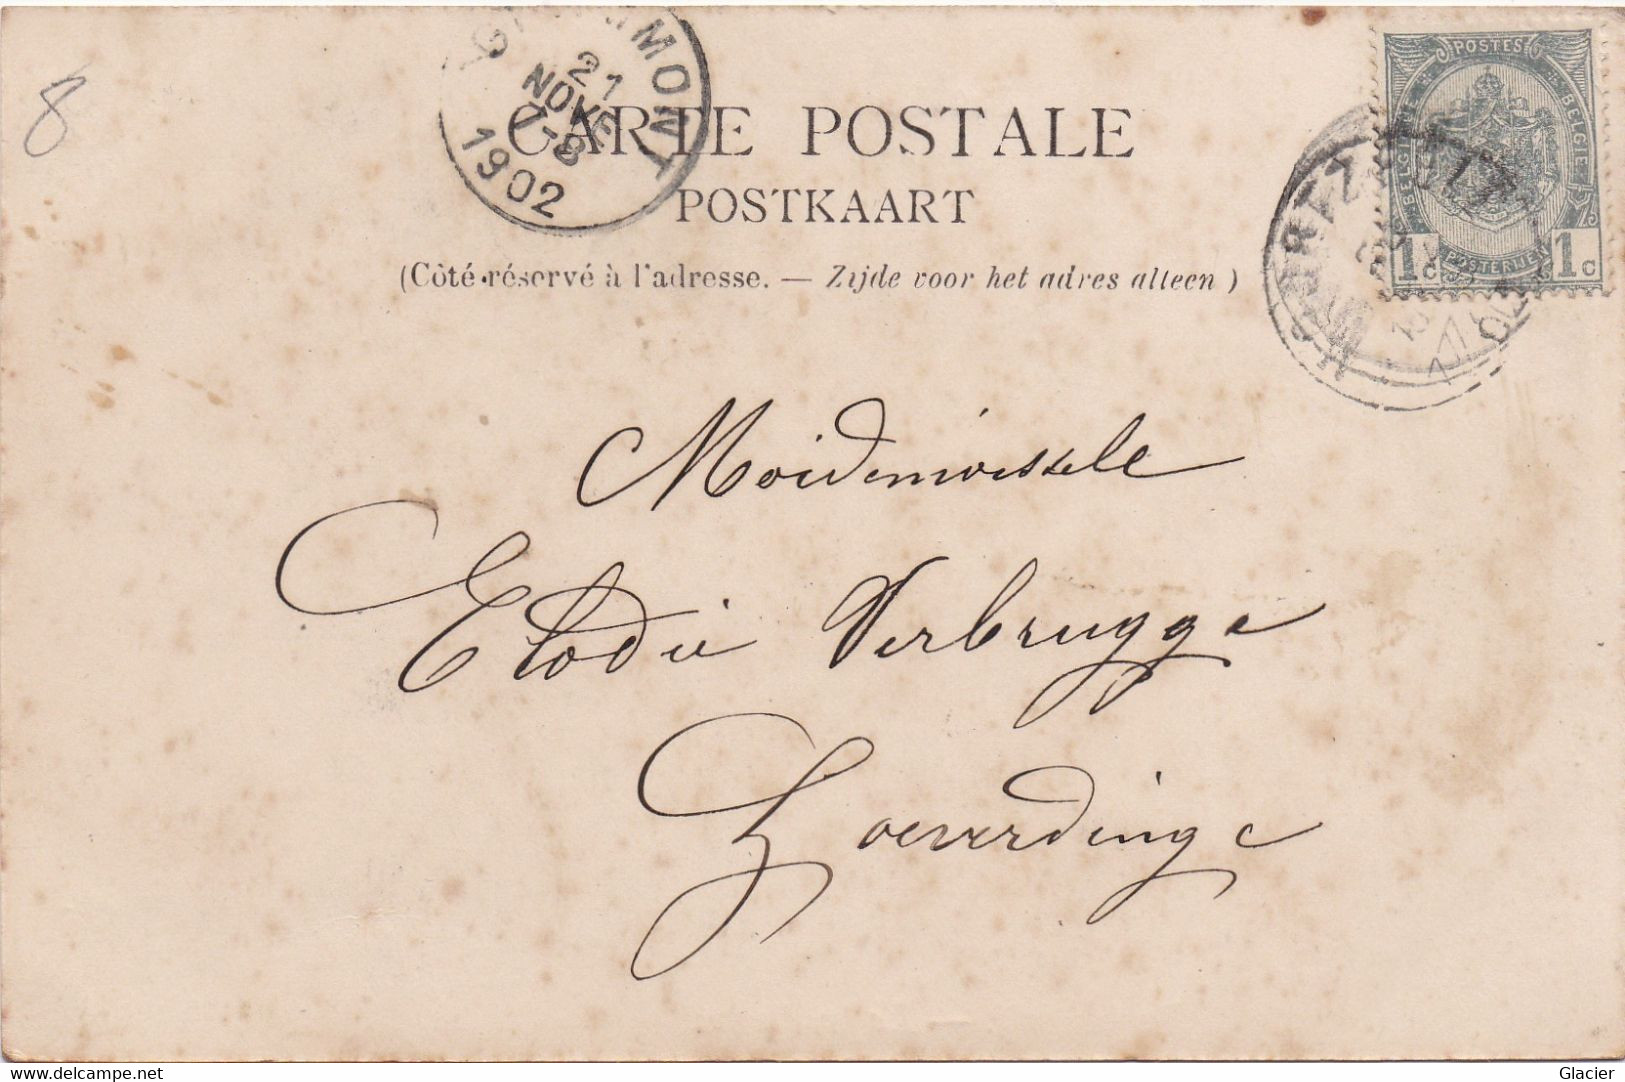 8
21
NOVE
7-8
1902
MONT
CARTE POSTALE
POSTKAART
(Côté réservé à l'adresse. — Zijde voor het adres alleen)
POSTES
BELGIE
POSTERIJEN
1c 1c
Moidemoiselle
Elodie Verbrugge
Goeverdinge
www.delcampe.net
Glacier